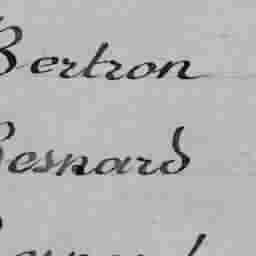 Bertron
Besnard